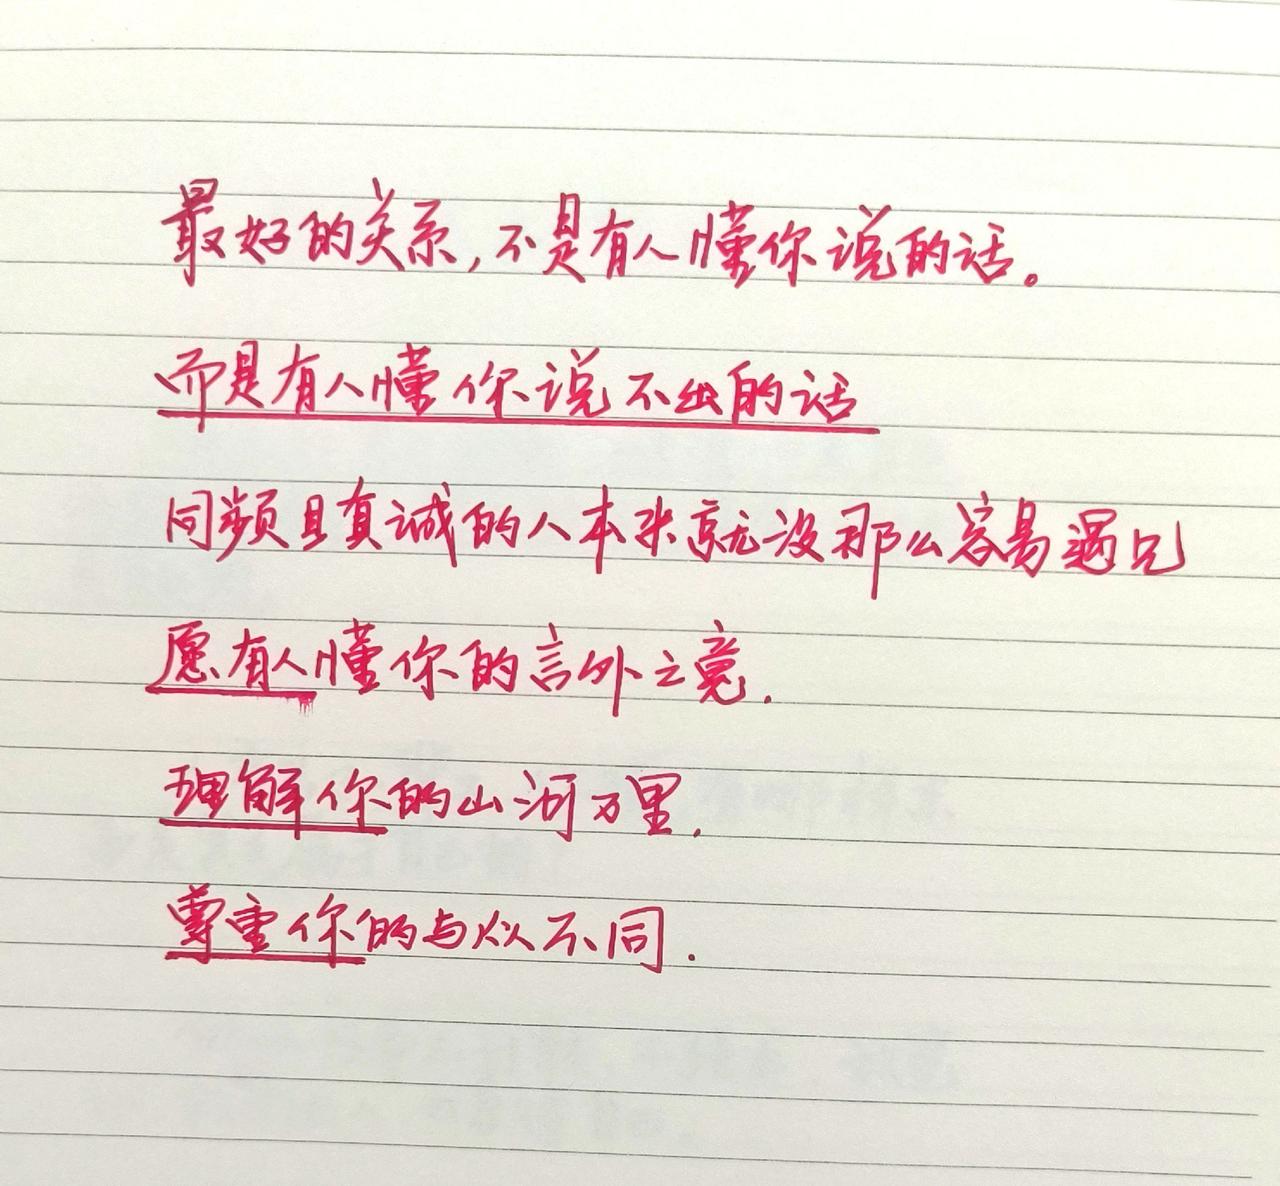 最好的关系,不是有人懂你说的话。
而是有人懂你说不出的话
同频且真诚的人本来就没那么容易遇见
愿有人懂你的言外之意.
理解你的山河万里.
尊重你的与众不同.